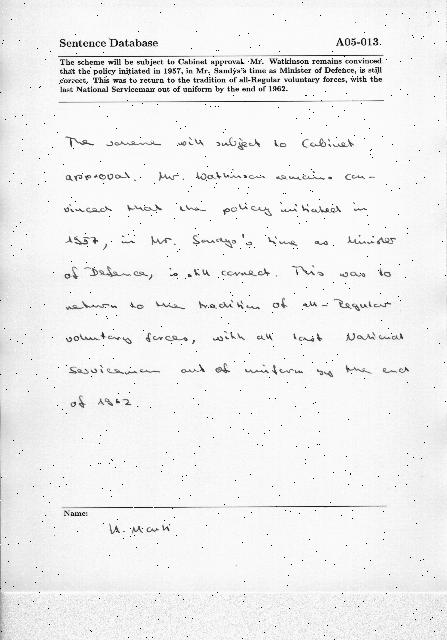 Sentence Database A05-013.
The scheme will be subject to Cabinet approval. Mr. Watkinson remains convinced
that the policy initiated in 1957, in Mr, Sandys's time as Minister of Defence, is still
correct. This was to return to the tradition of all-Regular voluntary forces, with the
last National Serviceman out of uniform by the end of 1962.
The scheme will subject to Cabinet
approval. Mr. Watkinson remains con-
vinced that the policy initiated in
1957, in Mr. Sandys's time as Minister
of Defence, is still correct. This was to
return to the tradition of all-Regular
voluntary forces, with all last National
Serviceman out of uniform by the end
of 1962.
Name: